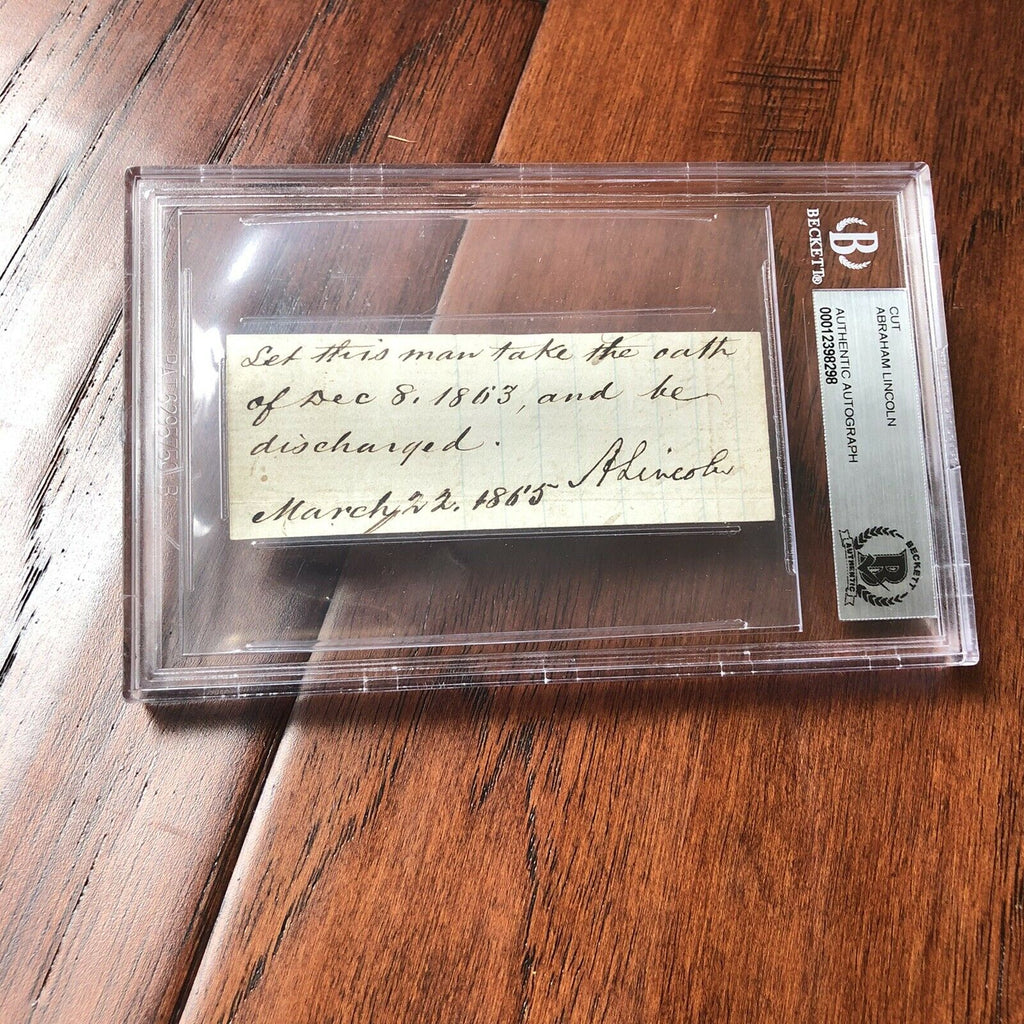 Let this man take the oath
of Dec 8. 1863, and be
discharged.
A Lincoln
March 22. 1865
BECKETT®
CUT
ABRAHAM LINCOLN
AUTHENTIC AUTOGRAPH
00012398298
BECKETT
AUTHENTIC